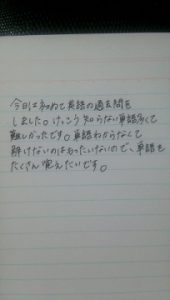 今日は初めて英語の過去問を
しました。けっこう知らない単語多くて
難しかったです。単語わからなくて
解けないのはもったいないので、単語を
たくさん覚えたいです。